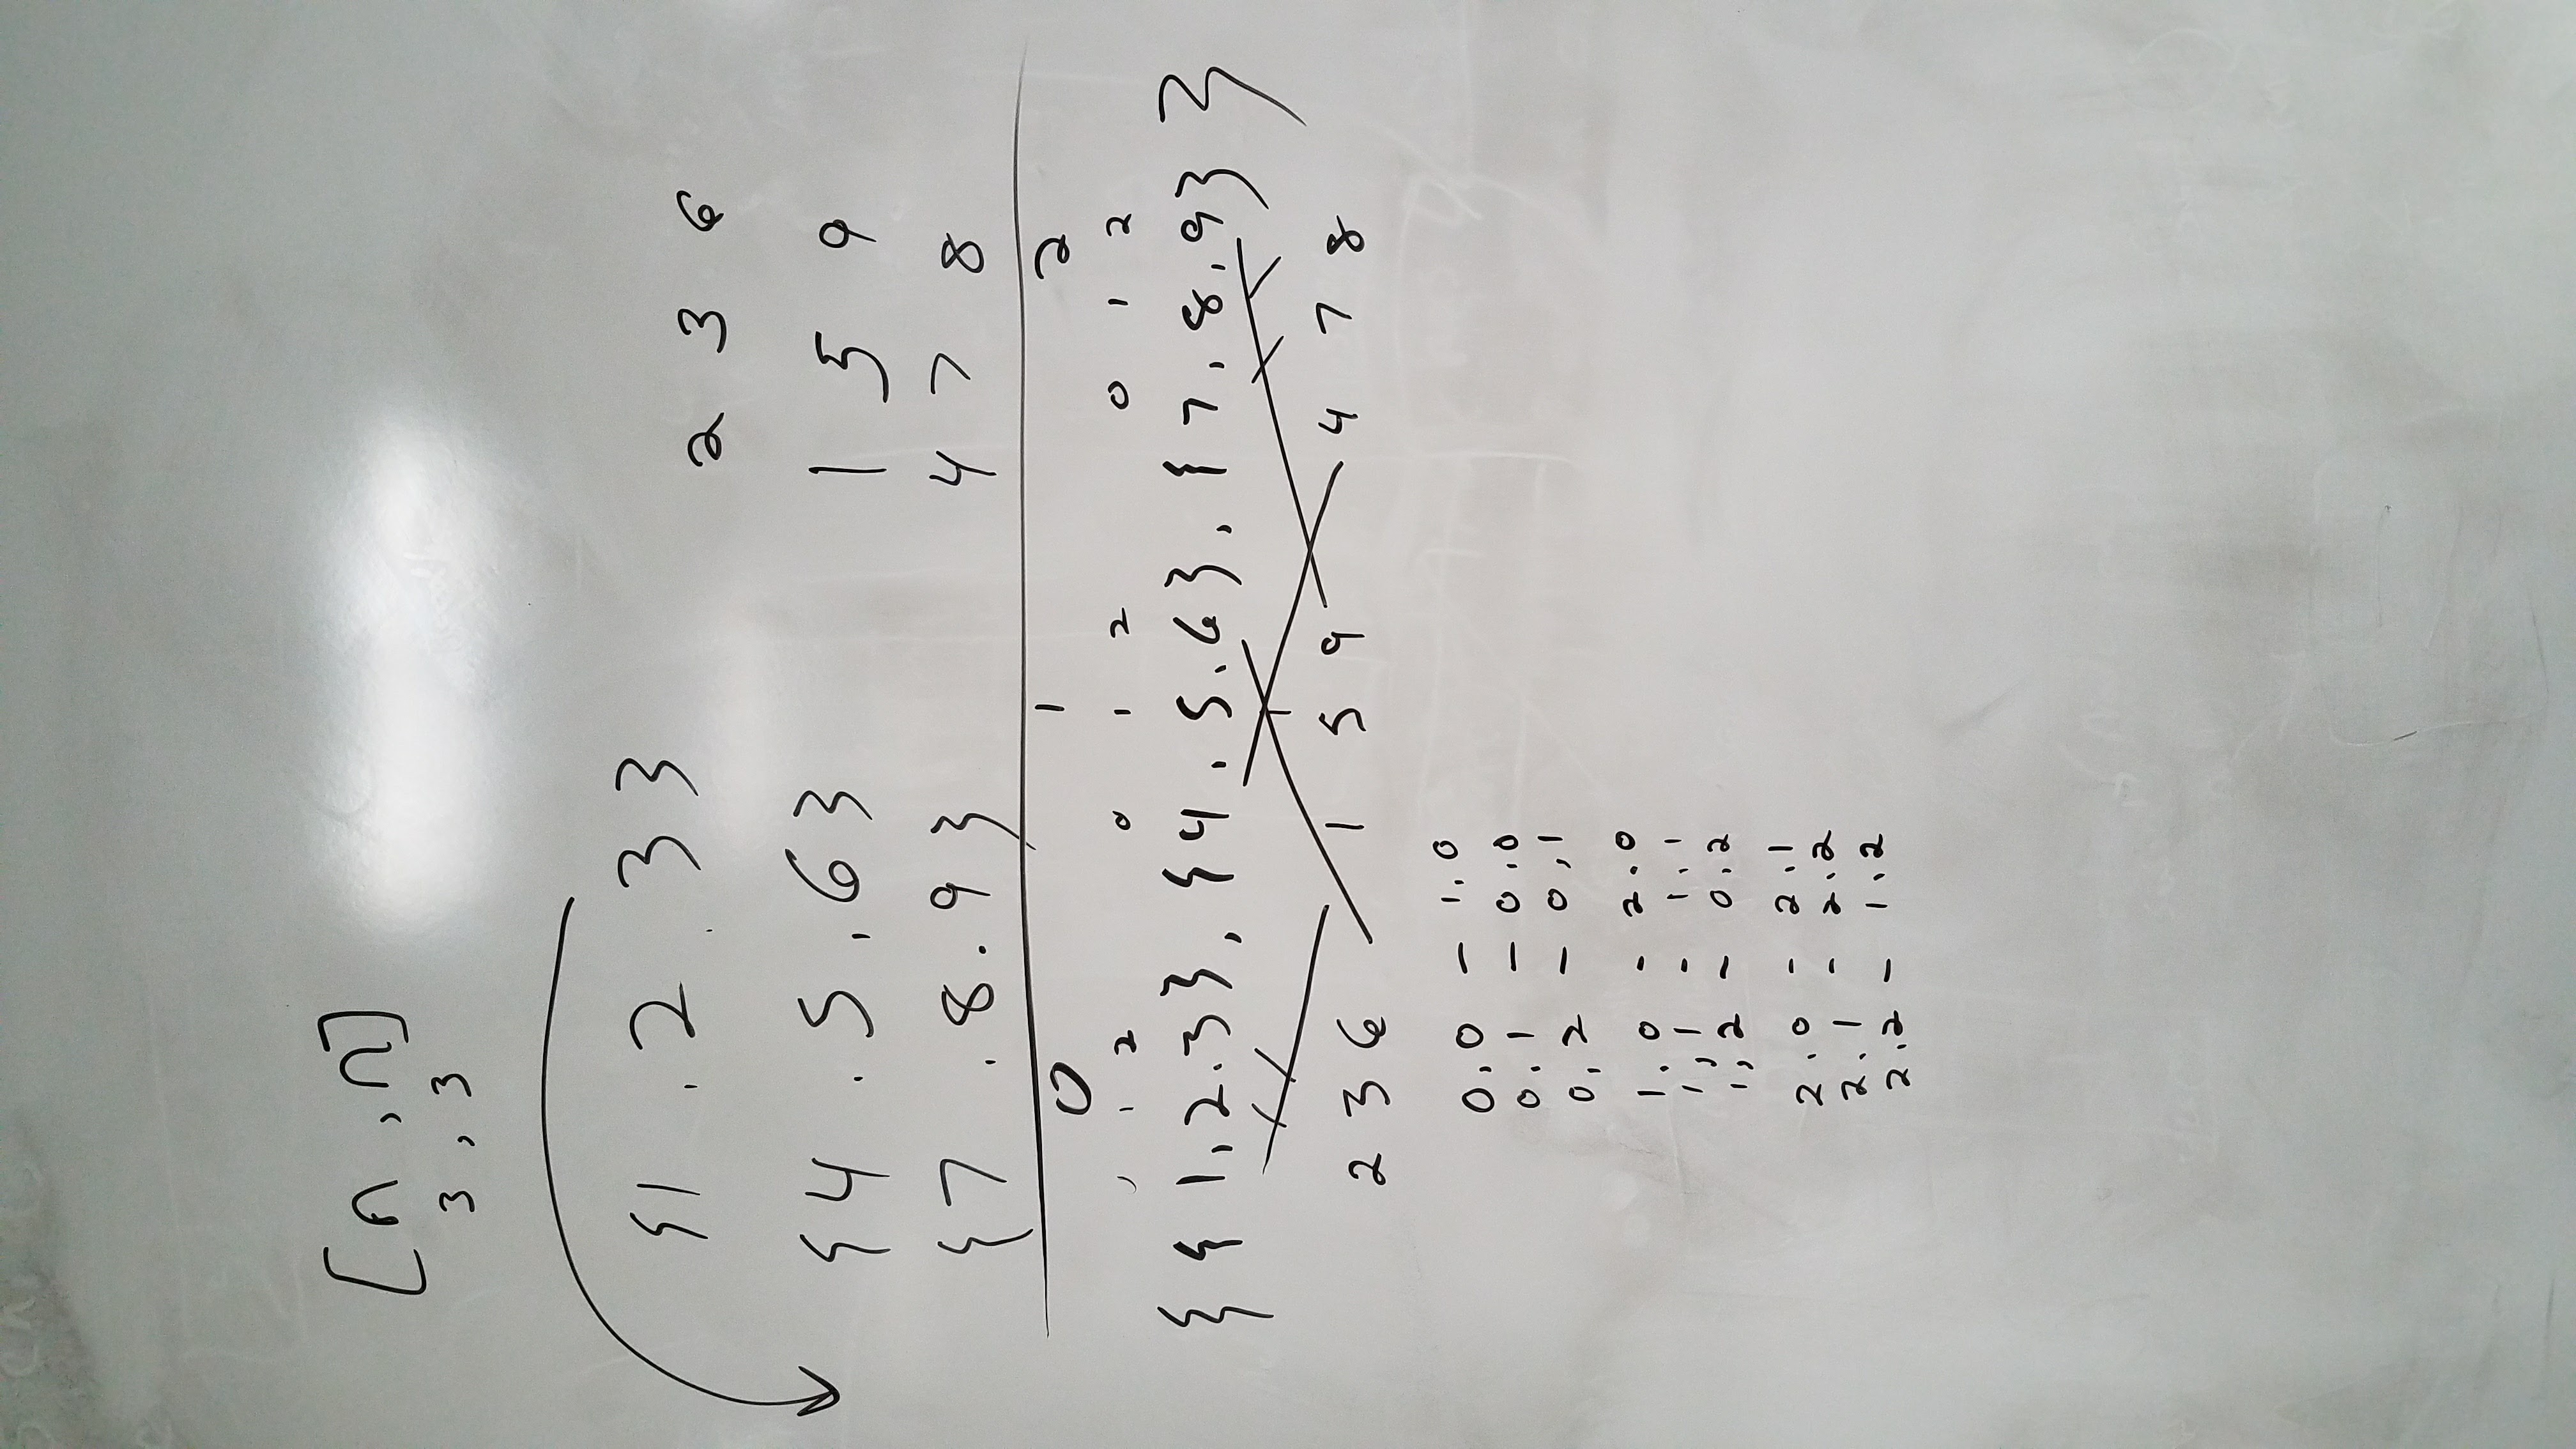 [n , n]
3 , 3
{1 , 2 , 3}
{4 , 5 , 6}
{7 , 8 , 9}
2 3 6
1 5 9
4 7 8
0 1 2
1 2 0 1 2 0 1 2
{ { 1, 2, 3}, {4, 5, 6}, {7, 8, 9} }
2 3 6 1 5 9 4 7 8
0,0 - 1,0
0,1 - 0,0
0,2 - 0,1
1,0 - 2,0
1,1 - 1,1
1,2 - 0,2
2,0 - 2,1
2,1 - 2,2
2,2 - 1,2